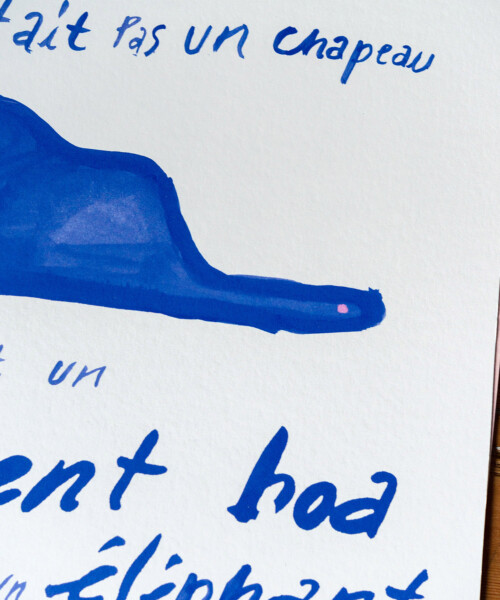 tait Pas un chapeau
t un
ent boa
un éléphant